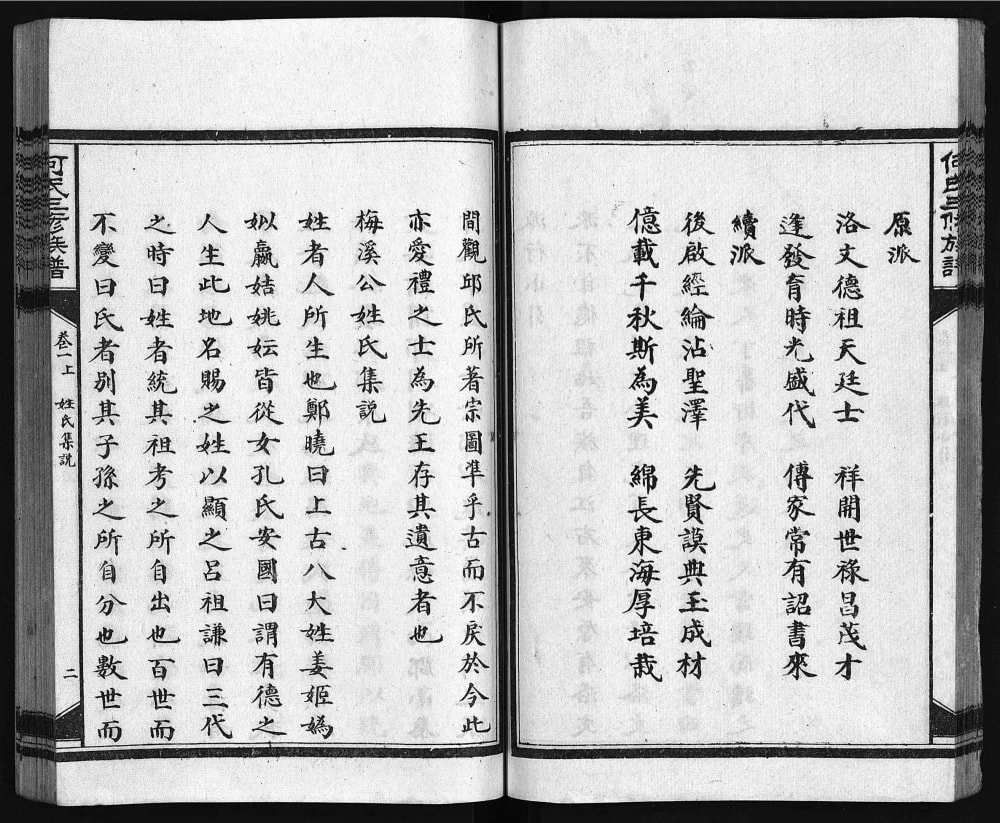 何氏三修族譜
原派
洛文德祖天廷士　祥開世祿昌茂才
逢發育時光盛代　傳家常有詔書來
續派
後啟經綸沾聖澤　先賢謨典玉成材
億載千秋斯為美　綿長東海厚培栽
間觀邱氏所著宗圖準乎古而不戾於今此
亦愛禮之士為先王存其遺意者也
梅溪公姓氏集說
姓者人所生也鄭曉曰上古八大姓姜姬媯
姒嬴姞姚妘皆從女孔氏安國曰謂有德之
人生此地名賜之姓以顯之呂祖謙曰三代
之時曰姓者統其祖考之所自出也百世而
不變曰氏者別其子孫之所自分也數世而
何氏三修族譜
卷一上　姓氏集說
二